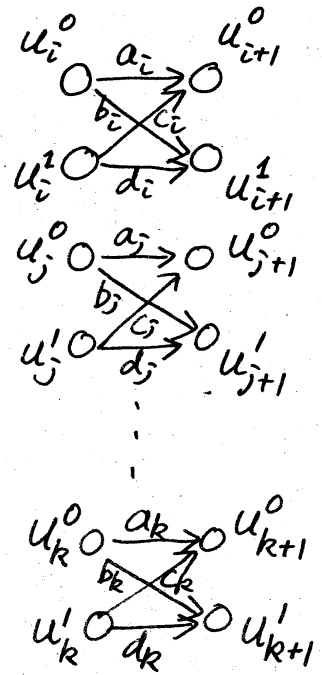 u_i^0 a_i u_{i+1}^0
b_i c_i
u_i^1 d_i u_{i+1}^1
u_j^0 a_j u_{j+1}^0
b_j c_j
u_j^1 d_j u_{j+1}^1
u_k^0 a_k u_{k+1}^0
b_k c_k
u_k^1 d_k u_{k+1}^1